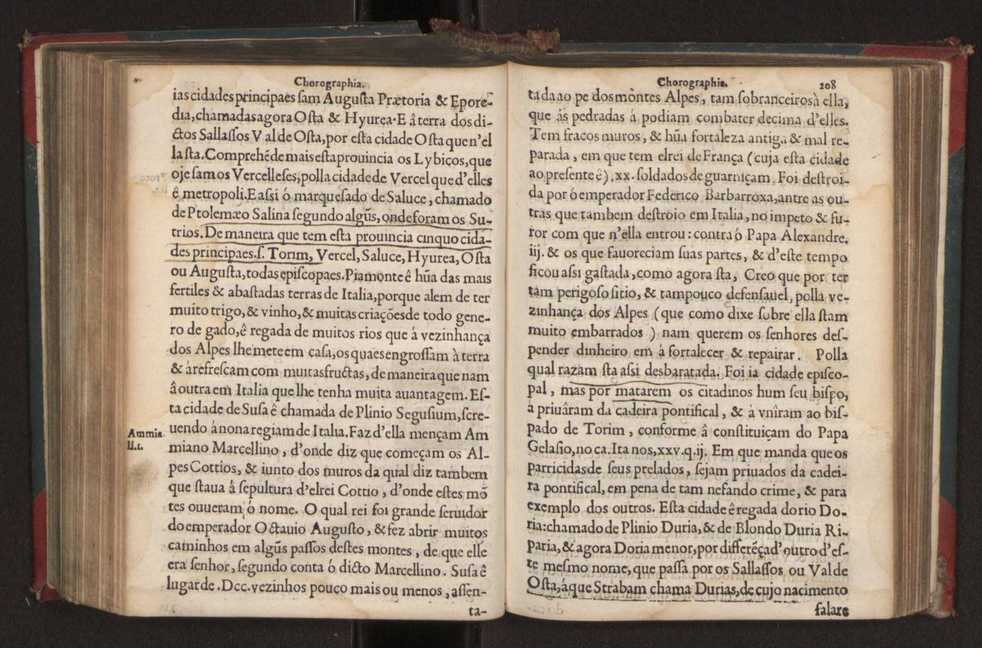 Chorographia.
ias cidades principaes sam Augusta Prætoria & Epore-
dia, chamadas agora Osta & Hyurea. E â terra dos di-
ctos Sallassos Val de Osta, por esta cidade Osta que n'el
la sta. Comprehẽde mais esta prouincia os Lybiços, que
oje sam os Vercelleses, polla cidade de Vercel que d'elles
ê metropoli. E assi ò marquesado de Saluce, chamado
de Ptolemæo Salina segundo algũs, onde foram os Su-
trios. De maneira que tem esta prouincia cinquo cida-
des principaes. s. Torim, Vercel, Saluce, Hyurea, Osta
ou Augusta, todas episcopaes. Piamonte ê hũa das mais
fertiles & abastadas terras de Italia, porque alem de ter
muito trigo, & vinho, & muitas criações de todo gene-
ro de gado, ê regada de muitos rios que á vezinhança
dos Alpes lhe mete em casa, os quaes engrossam à terra
& à refrescam com muitas fructas, de maneira que nam
â outra em Italia que lhe tenha muita auantagem. Es-
ta cidade de Susa ê chamada de Plinio Segusium, scre-
uendo á nona regiam de Italia. Faz d'ella mençam Am
miano Marcellino, d'onde diz que começam os Al-
pes Cottios, & iunto dos muros da qual diz tambem
que staua â sepultura d'elrei Cottio, d'onde estes mõ
tes ouueram ò nome. O qual rei foi grande seruidor
do emperador Octauio Augusto, & fez abrir muitos
caminhos em algũs passos destes montes, de que elle
era senhor, segundo conta ò dicto Marcellino. Susa ê
lugar de .Dcc. vezinhos pouco mais ou menos, assen-
ta-
Ammia.
li.1.
Chorographia.
208
tada ao pe dos montes Alpes, tam sobranceiros à ella,
que ás pedradas á podiam combater de cima d'elles.
Tem fracos muros, & hũa fortaleza antiga & mal re-
parada, em que tem elrei de França (cuja esta cidade
ao presente é) .xx. soldados de guarniçam. Foi destroi-
da por ò emperador Federico Barbarroxa, antre as ou-
tras que tambem destroio em Italia, no impeto & fu-
ror com que n'ella entrou: contra ò Papa Alexandre.
iij. & os que fauoreciam suas partes, & d'este tempo
ficou assi gastada, como agora sta, Creo que por ter
tam perigoso sitio, & tampouco defensauel, polla ve-
zinhança dos Alpes (que como dixe sobre ella stam
muito embarrados) nam querem os senhores des-
pender dinheiro em á fortalecer & repairar. Polla
qual razam sta assi desbaratada. Foi ia cidade episco-
pal, mas por matarem os citadinos hum seu bispo,
a priuâram da cadeira pontifical, & á vnîram ao bis-
pado de Torim, conforme â constituiçam do Papa
Gelasio, no ca. Ita nos, xxv. q. ij. Em que manda que os
parricidas de seus prelados, sejam priuados da cadei-
ra pontifical, em pena de tam nefando crime, & para
exemplo dos outros. Esta cidade ê regada do rio Do-
ria: chamado de Plinio Duria, & de Blondo Duria Ri-
paria, & agora Doria menor, por differẽça d'outro d'es-
te mesmo nome, que passa por os Sallassos ou Val de
Osta, á que Strabam chama Durias, de cujo nacimento
falare